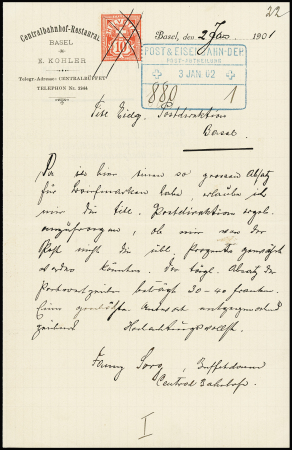 22
Centralbahnhof-Restaurant
BASEL
K. KOHLER
Telegr.-Adresse: CENTRALBÜFFET
TELEPHON Nr. 2944
10
Basel, den 2 Jan. 1901
POST & EISENBAHN-DEP.
3 JAN. 02
880 1
Tite Eidg. Postdirektion
Basel.
Da ich hier einen so grossen Absatz
für Briefmarken habe, erlaube ich
mir die tite. Postdirektion ergeb.
anzufragen, ob mir von der
Post nicht die übl. Prozente gewährt
werden könnten. Der tägl. Absatz der
Postwertzeichen beträgt 30-40 franken.
Einer Antwort entgegensehend
zeichnet Hochachtungsvollst.
Fanny Sorg, Buffetdame
Central Bahnhof.
I